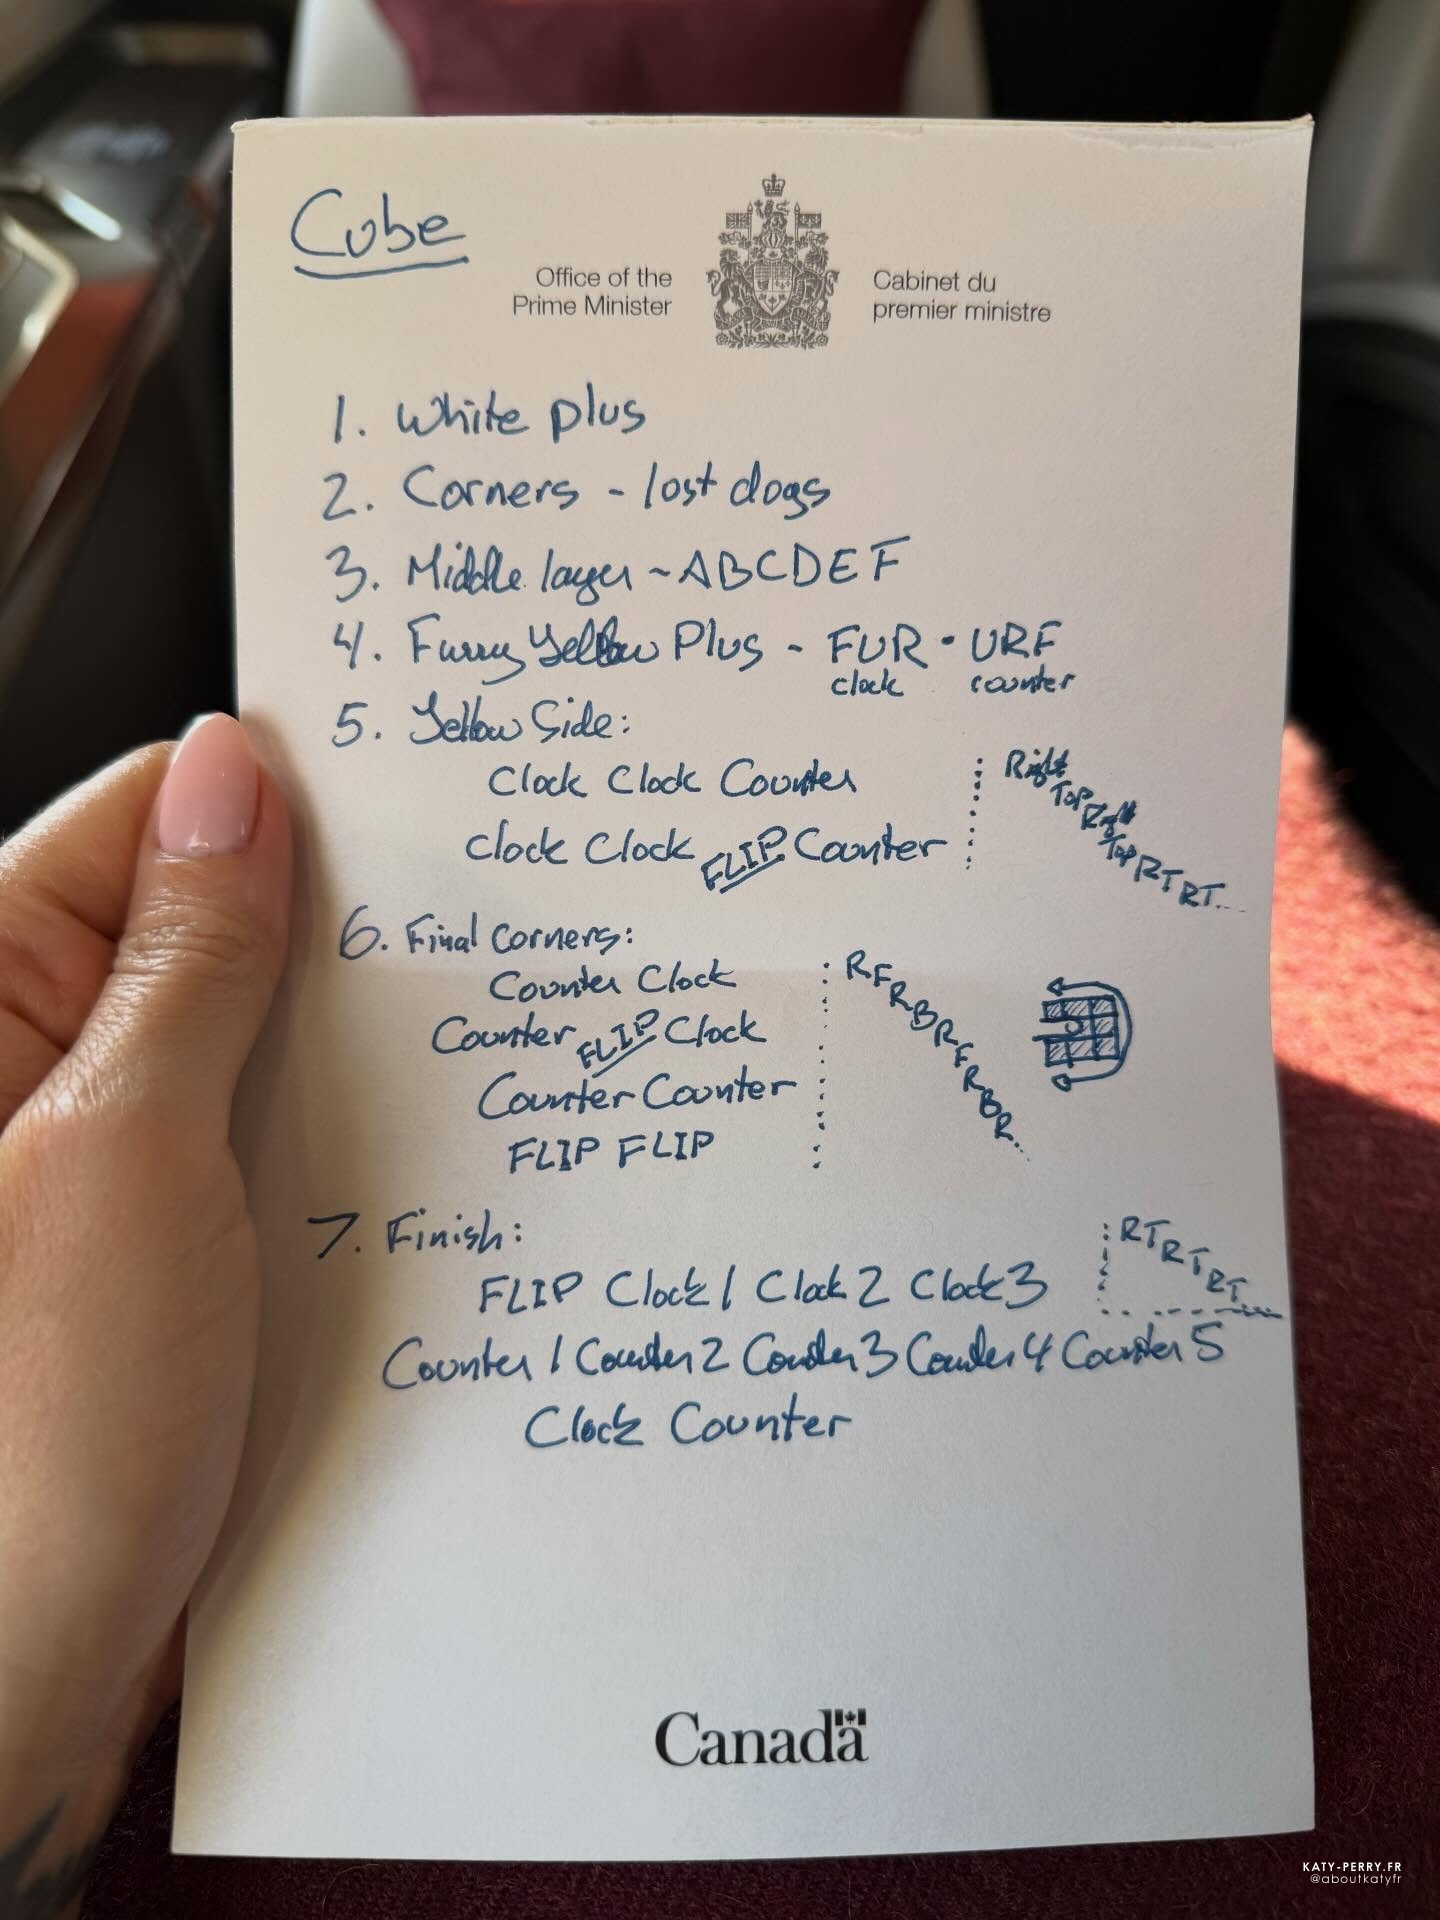 Cube
Office of the
Prime Minister
Cabinet du
premier ministre
1. White plus
2. Corners - lost dogs
3. Middle layer ~ ABCDEF
4. Furry Yellow Plus - FUR • URF
clock counter
5. Yellow Side:
Clock Clock Counter
Clock Clock FLIP Counter
Right
Top
Right
Top
R T R T...
6. Final Corners:
Counter Clock
Counter FLIP Clock
Counter Counter
FLIP FLIP
R F R B R F R B R...
7. Finish:
FLIP Clock 1 Clock 2 Clock 3
RT RT RT
Counter 1 Counter 2 Counter 3 Counter 4 Counter 5
Clock Counter
Canada
KATY-PERRY.FR
@aboutkatyfr